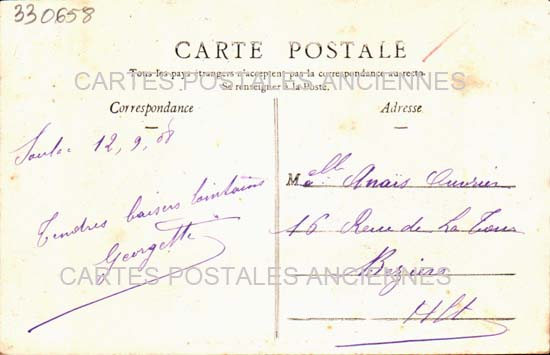 330658
CARTE POSTALE
Tous les pays étrangers n'acceptent pas la correspondance au recto.
Se renseigner à la Poste.
CARTES POSTALES ANCIENNES
Correspondance
Adresse
12, 9, 08
Tendres baisers lointains
Georgette
Melle Anaïs
16 Rue de La Tour
Beziers
Hlt
CARTES POSTALES ANCIENNES